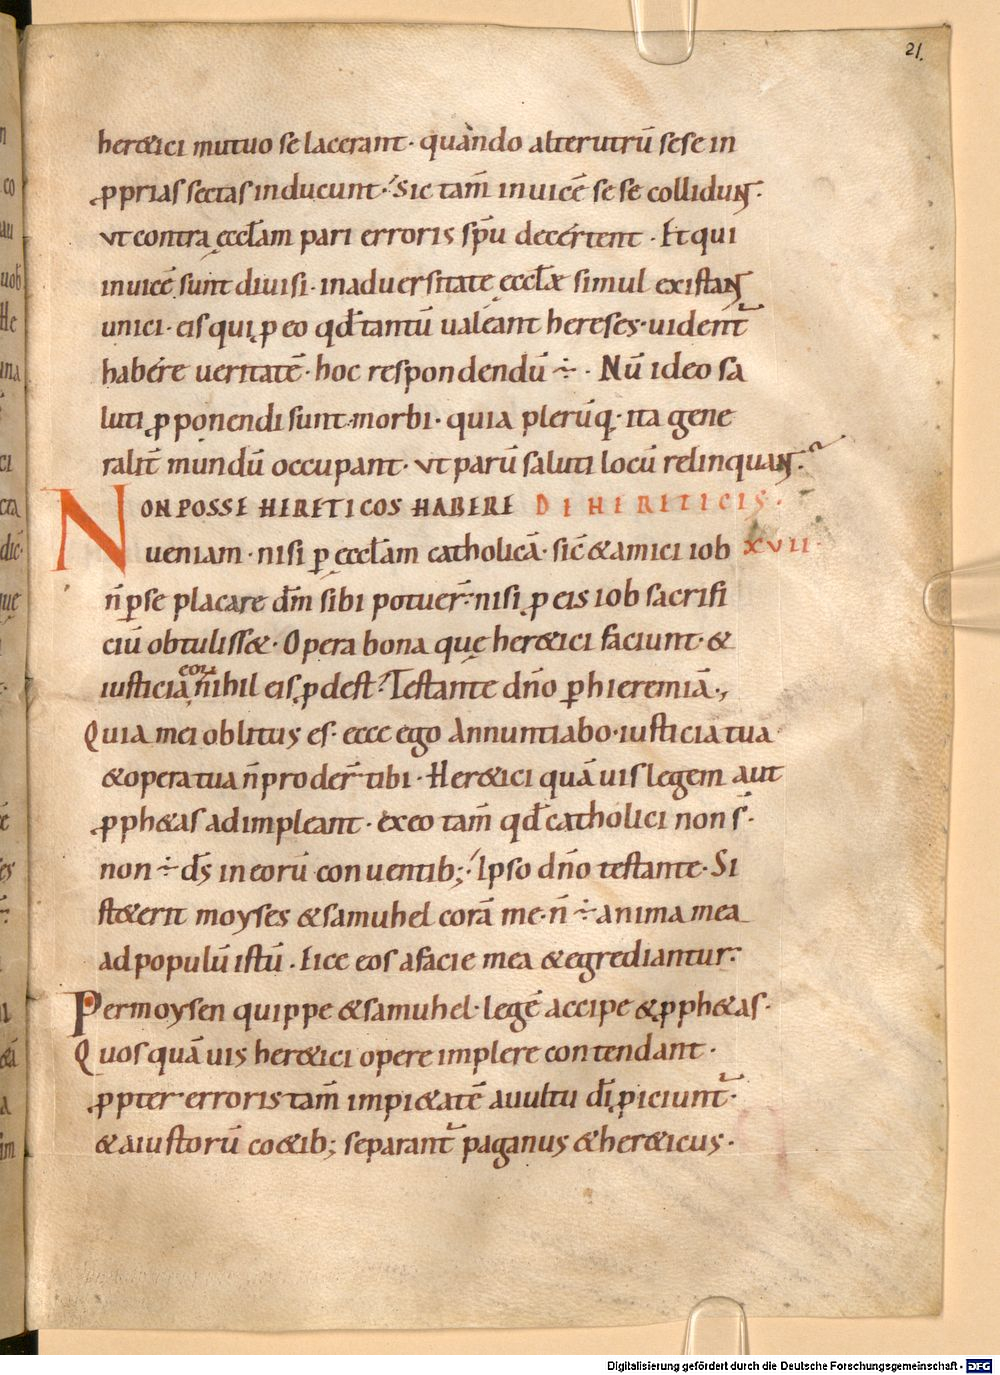 21.
her&ici mutuo se lacerant · quando alterutrū sese in
ꝓprias sectas inducunt · Sic tam̄ inuicē se se collidunt ·
vt contra ęccl̄am pari erroris sp̄u decertent · Et qui
inuicē sunt diuisi · in aduersitate ęccl̄æ simul existant
unici · eis qui ꝓ eo qđ tantū ualeant hereses · uident᷑
habere ueritatē · hoc respondendū ÷ · Nū ideo sa
luti ꝓponendi sunt morbi · quia plerūq · ita gene
ralit̄ mundū occupant · vt parū saluti locū relinquant ·
NON POSSE HERETICOS HABERE DE HERETICIS ·
ueniam · nisi ꝑ ęccl̄am catholicā · sic̄ & amici iob XVII ·
n̄ ꝑ se placare dm̄ sibi potuer̄ · nisi ꝓ eis iob sacrifi
ciū obtuliss& · Opera bona que her&ici faciunt · &
iusticia eoꝝ nihil eis ꝓdest · Testante dn̄o ꝑ hieremiā ·,
Quia mei oblitus es · ecce ego Annuntiabo · iusticia tua
& opera tua n̄ proder̄ tibi · Her&ici quāuis legem aut
ꝓph&as adimpleant · ex eo tam̄ qđ catholici non s̄ ·
non ÷ ds̄ in eorū conuentib; · Ipso dn̄o testante · Si
st&erit moyses & samuhel corā me · n̄ ÷ anima mea
ad populū istū · Eice eos a facie mea & egrediantur ·
Per moysen quippe & samuhel · legē accipe & ꝓph&as ·
Quos quāuis her&ici opere implere contendant ·
ꝓpter erroris tam̄ impi&atē a uultu dī ꝓiciunt᷑ ·
& a iustorū co&ib; separant᷑ paganus & her&icus ·
Digitalisierung gefördert durch die Deutsche Forschungsgemeinschaft - DFG